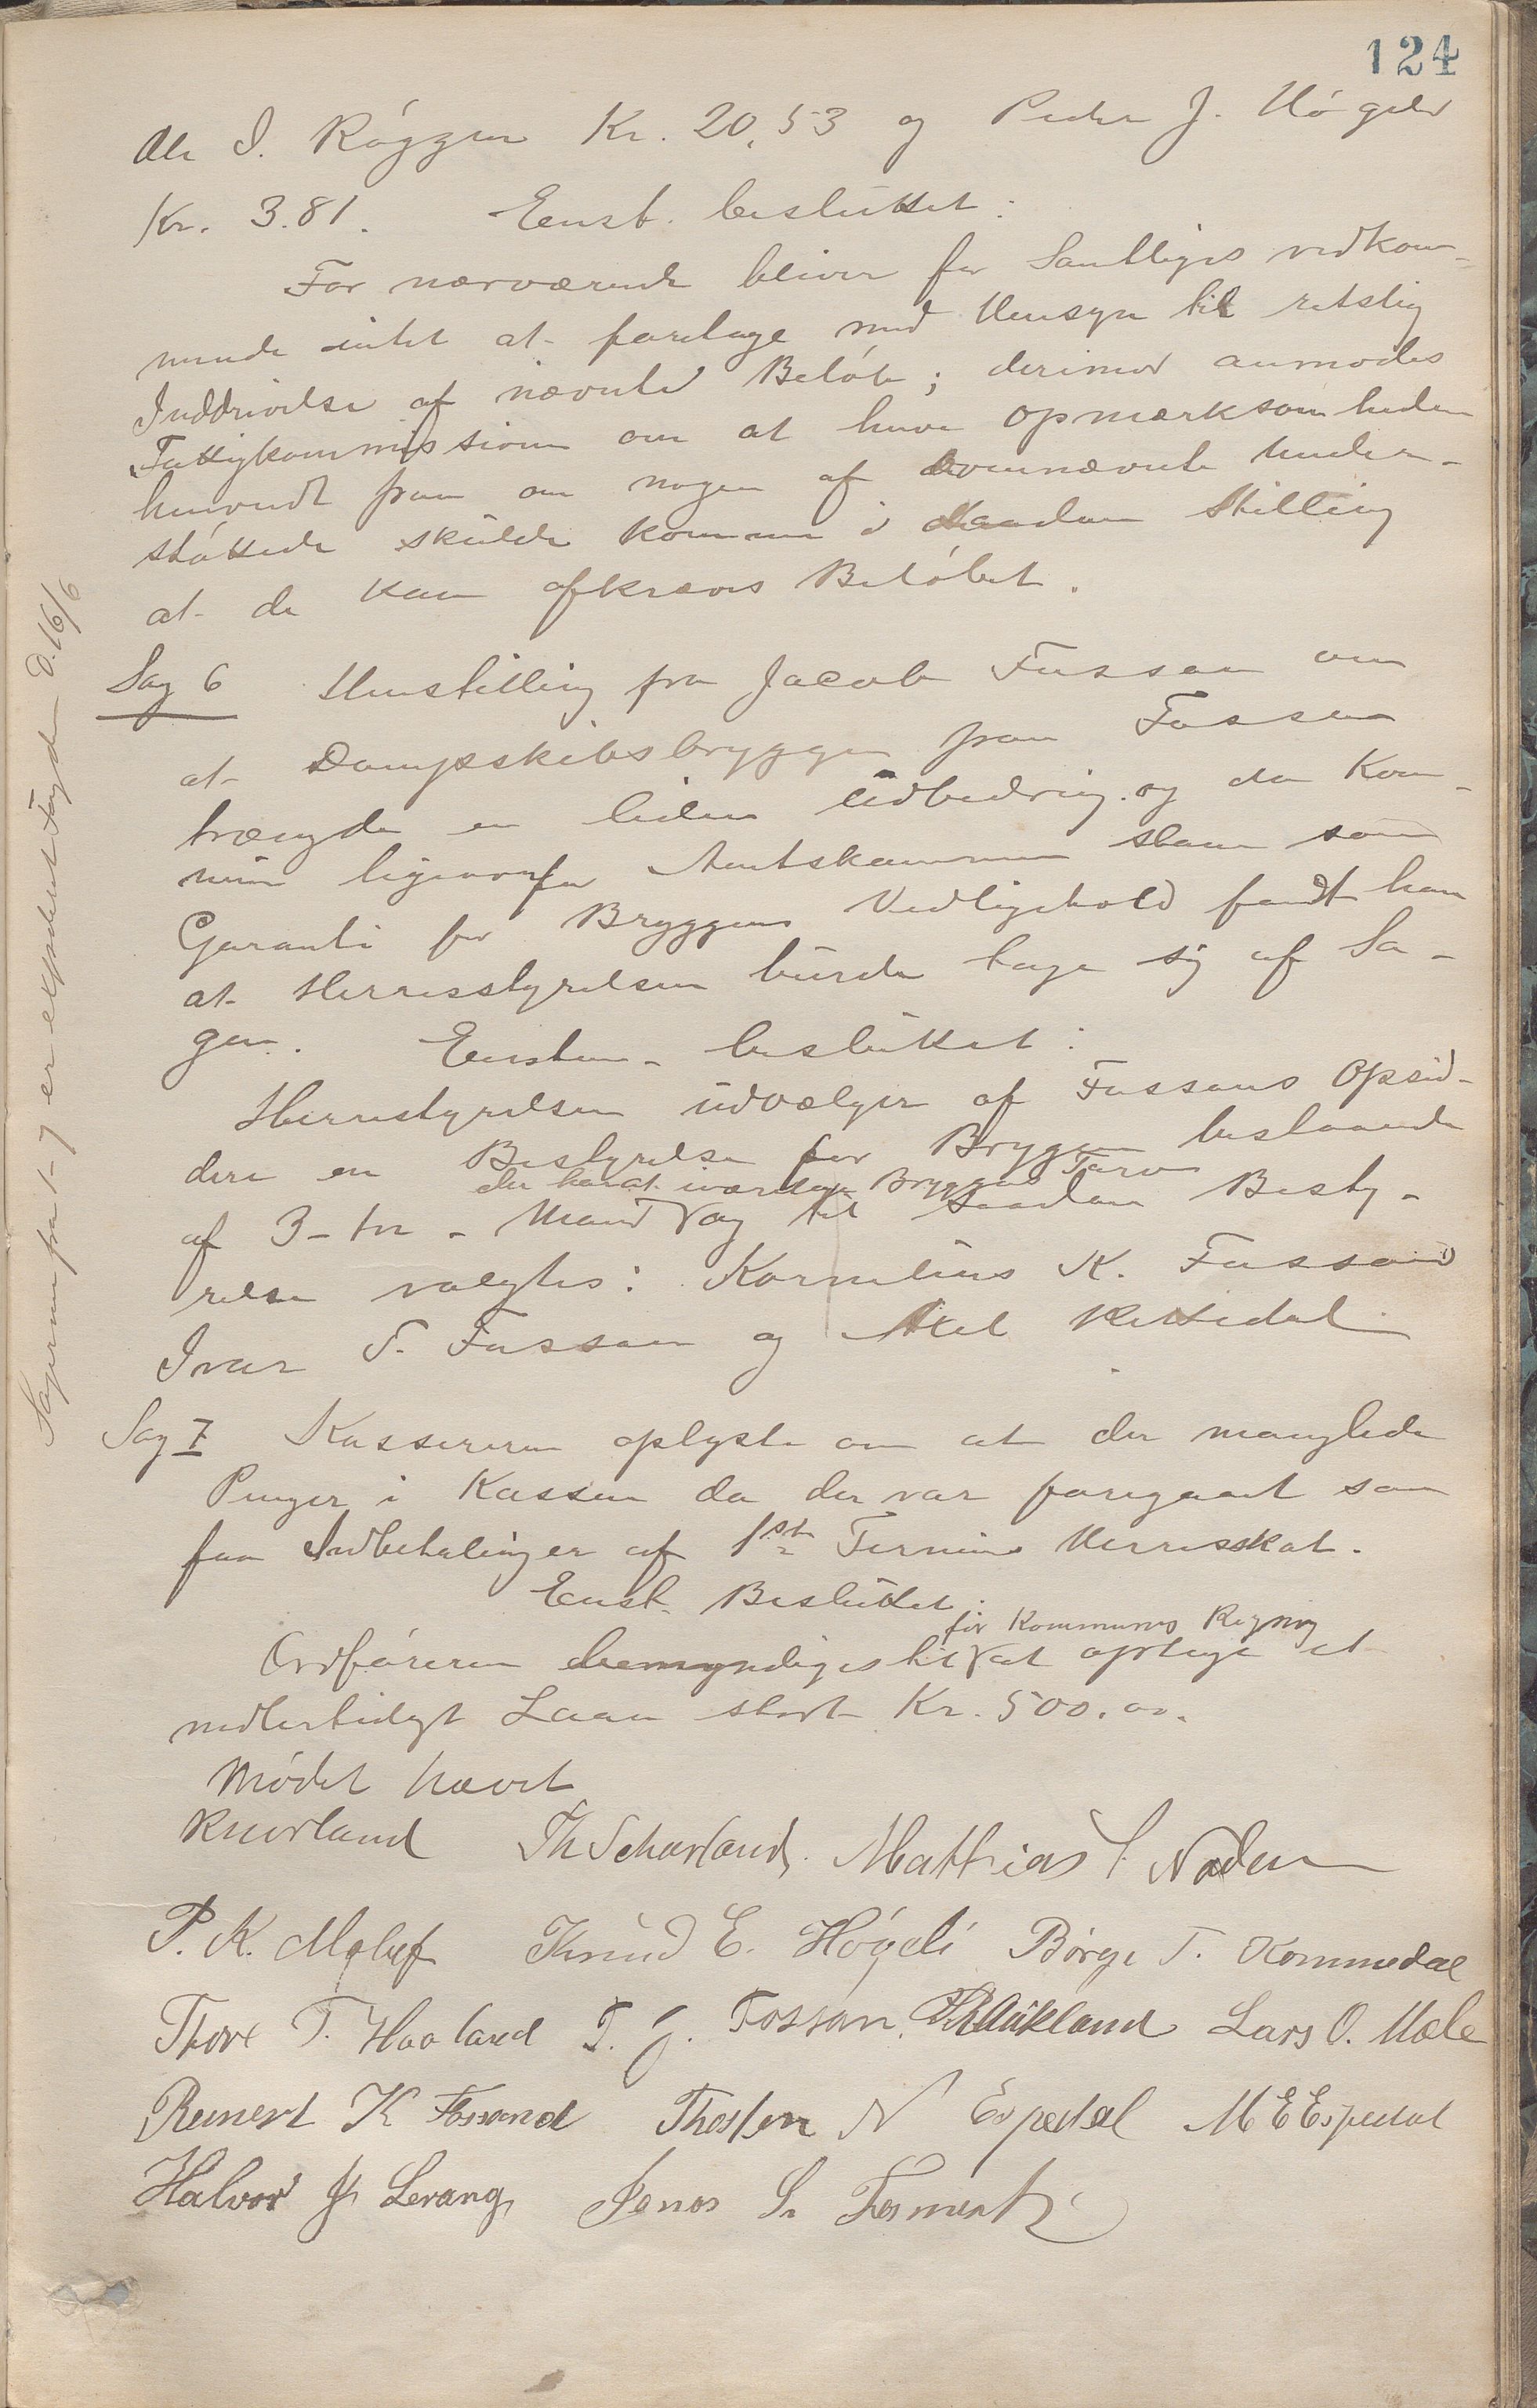 124
Ole I. Røggen Kr. 20,53 og Peder J. Høgeli
Kr. 3.81. Eenst. besluttet:
For nærværende bliver for Samtliges vedkom-
mende intet at foretage med Hensyn til retslig
Inddrivelse af nævnte Beløb; derimod anmodes
Fattigkommissionen om at have opmærksomheden
henvendt paa om nogen af ovennævnte Under-
støttede skulde komme i saadan Stilling
at de kan afkræves Beløbet.
Sag 6 Henstilling fra Jacob Fossan om
at Dampskibsbryggen paa Fossan
trængde en liden Udbedring og da Kom-
munen ligeoverfor Amtskommunen staar som
Garanti for Bryggens Vedligehold fandt han
at Herredsstyrelsen burde tage sig af Sa-
gen. Eenstem. besluttet:
Herredstyrelsen udvælger af Fossans Opsid-
dere en Bestyrelse for Bryggen bestaaende
der har at ivaretage Bryggens Tarv
af 3-tre- Mand og til saadan Besty-
relse valgtes: Kornelius K. Fossan
Ivar T. Fossan og Axel Rettedal
Sag 7 Kassereren oplyste om at der manglede
Penger i Kassen da der var foregaaet saa
faa Indbetalinger af 1ste Termins Herredsskat.
Eenst. Besluttet:
for Kommunens Regning
Ordføreren bemyndiges til at optage et
midlertidigt Laan stort Kr. 500.00.
Mødet hævet
RHorland Th Schavland. Mathias S Naden
P. K. Meltveit Knud E. Høgeli Børge T. Kommedal
Thore T. Haaland T. J. Fossan. Aukland Lars O. Mæle
Reinert K Fossand Thosten N Espedal M E Espedal
Halvor J. Levang Jonas Sr Tesmerk
Sagerne fra 1-7 er expederet Fogden D. 16/6